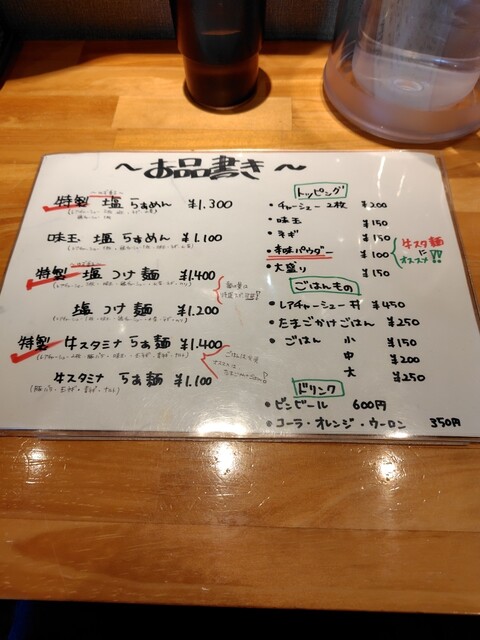 ～お品書き～
特製 塩 らぁめん ¥1.300
味玉 塩 らぁめん ¥1.100
特製 塩 つけ麺 ¥1.400
塩 つけ麺 ¥1.200
特製 牛スタミナ らぁ麺 ¥1.400
牛スタミナ らぁ麺 ¥1.100
トッピング
・チャーシュー 2枚 ¥200
・味玉 ¥150
・ネギ ¥150
・本味パウダー ¥100
・大盛り ¥150
牛スタ麺
に
オススメ!!
ごはんもの
・レアチャーシュー丼 ¥450
・たまごかけごはん ¥250
・ごはん 小 ¥150
中 ¥200
大 ¥250
ドリンク
・ビンビール 600円
・コーラ・オレンジ・ウーロン 350円